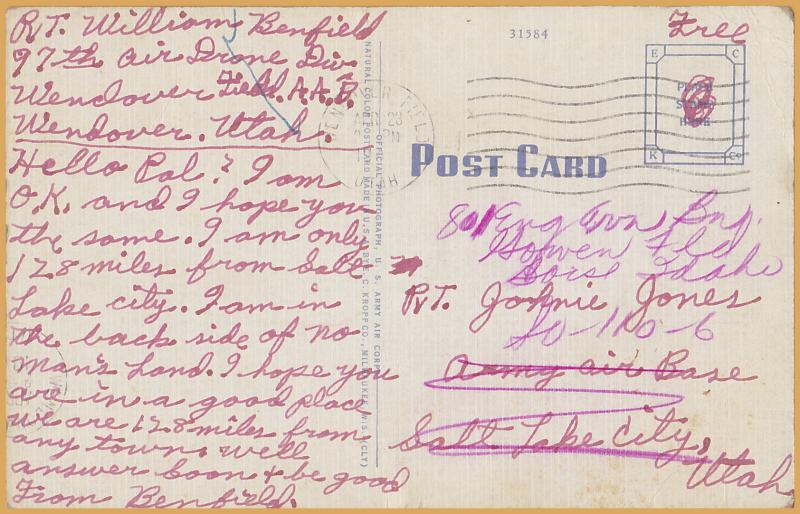 Pvt. William J Benfield
97th Air Drone Div.
Wendover Field. A.A.B.
Wendover. Utah.
Hello Pal? I am
O.K. and I hope you
the same. I am only
128 miles from Salt
Lake city. I am in
the back side of no
man's Land. I hope you
are in a good place
we are 128 miles from
any town. well
answer soon + be good
From Benfield.
NATURAL COLOR POST CARD MADE IN U.S.A. BY E. C. KROPP CO., MILWAUKEE, WIS. (CLY)
OFFICIAL PHOTOGRAPH, U. S. ARMY AIR CORPS
31584
Free
E C
PLACE
STAMP
HERE
K Co
FIELD
UTAH
POST CARD
801 Eng Avn, Bn,
Gowen Fld
Boise Idaho
Pvt. Johnie Jones
Army air Base
Salt Lake City,
Utah